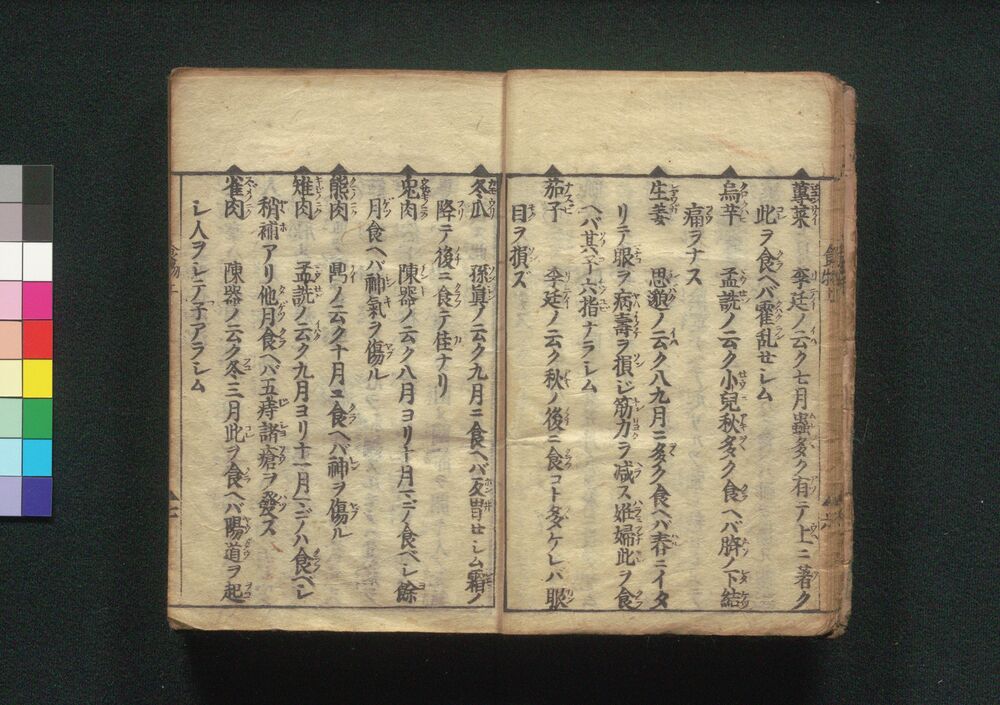 蓴菜 李廷ノ云ク七月蟲多ク有テ上ニ著ク
此ヲ食ヘバ霍乱せシム
烏芋 孟詵ノ云ク小兒秋多ク食ヘバ臍ノ下結
痛ヲナス
生姜 思邈ノ云ク八九月ニ多ク食ヘバ春ニイタ
リテ眼ヲ病壽ヲ損ジ筋力ヲ减ス姙婦此ヲ食
ヘバ其子六指ナラシム
茄子 李廷ノ云ク秋ノ後ニ食コト多ケレバ眼
目ヲ損ズ
冬瓜 孫真ノ云ク九月ニ食ヘバ反胃せシム霜ノ
降テ後ニ食テ佳ナリ
兎肉 陳器ノ云ク八月ヨリ十月マデノ食ベシ餘
月食ヘバ神氣ヲ傷ル
熊肉 ノ云ク十月ニ食ヘバ神ヲ傷ル
雉肉 孟詵ノ云ク九月ヨリ十一月マデノハ食ベシ
稍補アリ他月食ヘバ五痔諸瘡ヲ發ズ
雀肉 陳器ノ云ク冬三月此ヲ食ヘバ陽道ヲ起
シ人ヲシテ子アラシム